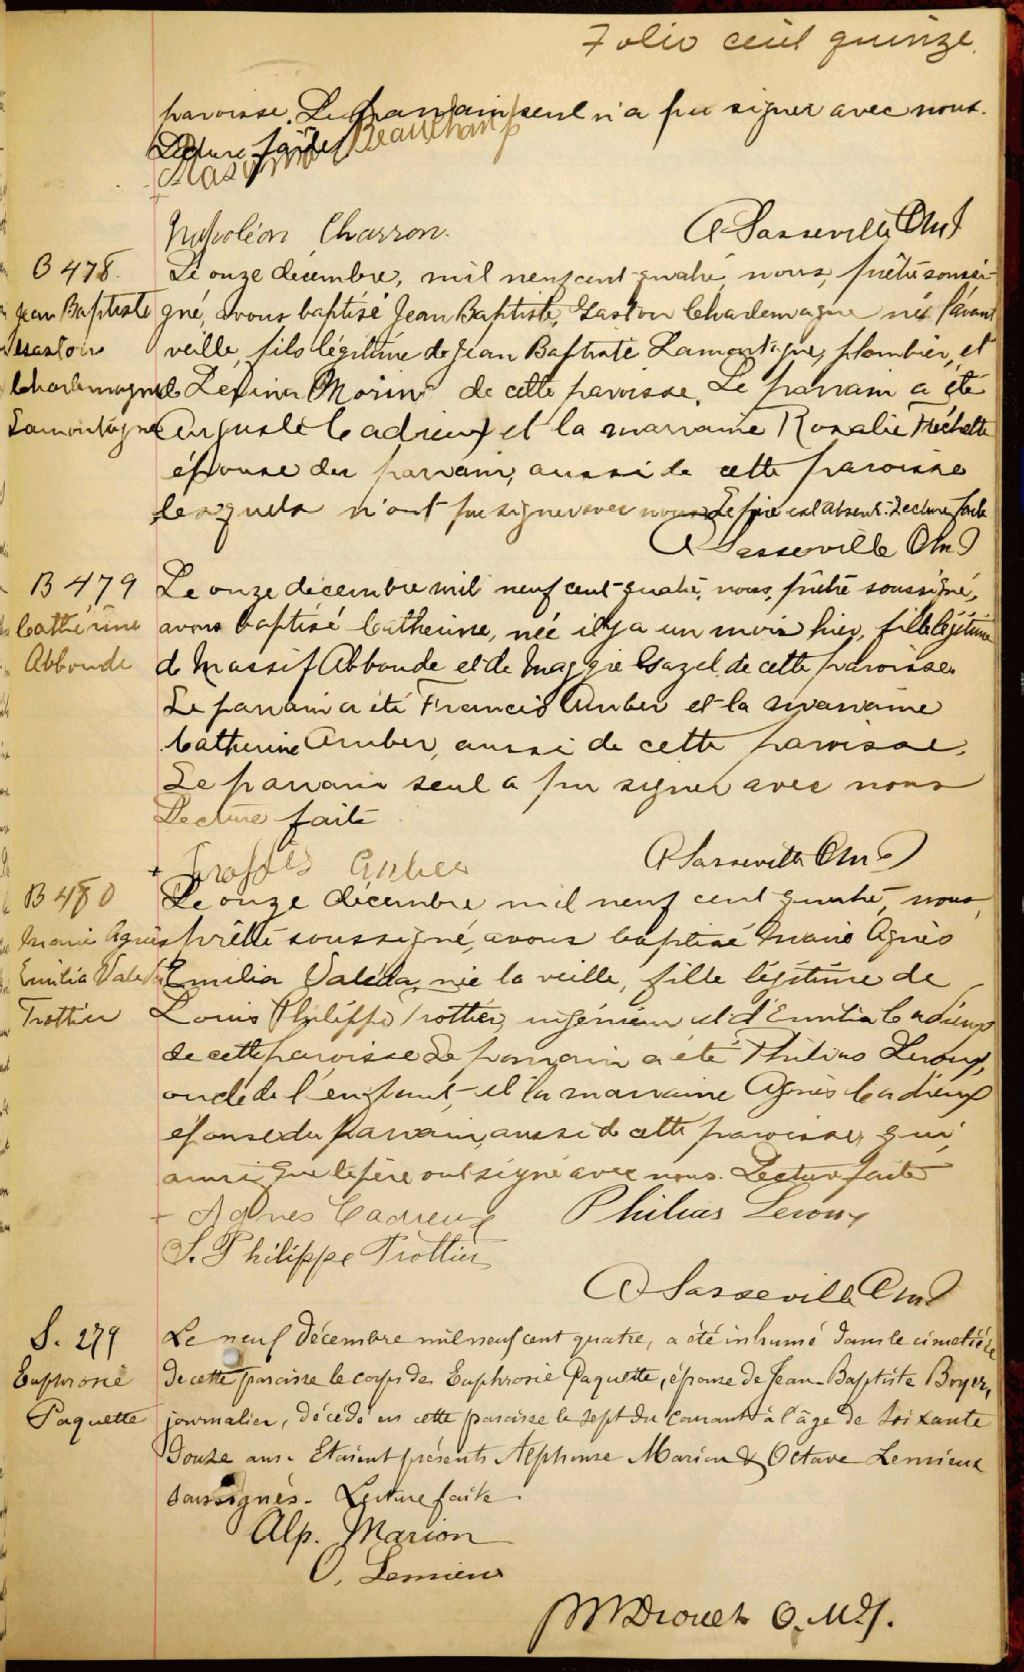 Folio cent quinze.
paroisse. Le parrain seul n'a pu signer avec nous.
Lecture faite
Beauchamp
Napoléon Charron.
A Sasseville OMI
B 478.
Jean Baptiste
Gaston
Charlemagne
Lamontagne
Le onze décembre, mil neuf cent quatre, nous, prêtre soussi-
gné, avons baptisé Jean Baptiste, Gaston Charlemagne né l'avant
veille, fils légitime de Jean Baptiste Lamontagne, plombier, et
de Morin de cette paroisse. Le parrain a été
Auguste Cadieux et la marraine Rosalie Fréchette
épouse du parrain, aussi de cette paroisse
lesquels n'ont pu signer avec nous. Le père est absent. Lecture faite
A Sasseville OMI
B 479
Cathérine
Abboude
Le onze décembre mil neuf cent quatre, nous, prêtre soussigné,
avons baptisé Catherine, née il y a un mois hier, fille légitime
de Massif Abboude et de Maggie Gazel de cette paroisse.
Le parrain a été Francis Amber et la marraine
Catherine Amber, aussi de cette paroisse.
Le parrain seul a pu signer avec nous
Lecture faite
A Sasseville OMI
B 480
Marie Agnès
Emilia Valéda
Trottier
Le onze décembre mil neuf cent quatre, nous,
prêtre soussigné, avons baptisé Marie Agnès
Emilia Valéda, née la veille, fille légitime de
Louis Philippe Trottier, ingénieur et d'Emilia Cadieux
de cette paroisse Le parrain a été Philias Leroux,
oncle de l'enfant, et la marraine Agnès Cadieux
épouse du parrain, aussi de cette paroisse, qui,
ainsi que le père ont signé avec nous. Lecture faite
Agnes Cadieux Philias Leroux
L. Philippe Trottier
A Sasseville OMI
S. 279
Euphrosie
Paquette
Le neuf décembre mil neuf cent quatre, a été inhumé dans le cimetière
de cette paroisse le corps de Euphrosie Paquette, épouse de Jean-Baptiste Boyer,
journalier, décédé en cette paroisse le sept du courant à l'âge de soixante
douze ans. Etaient présents Alphonse Marion & Octave Lemieux
soussignés. Lecture faite.
Alp. Marion
O. Lemieux
Drouet O.M.I.